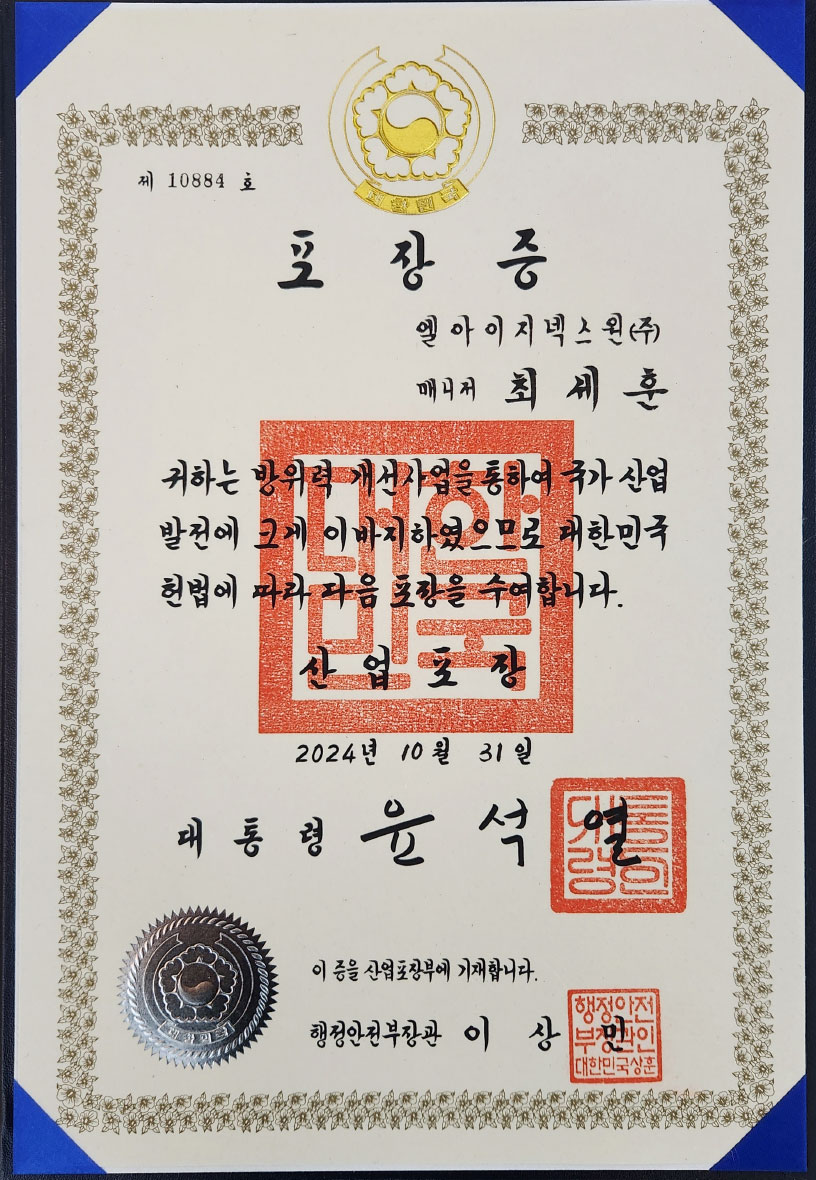 대한민국
제 10884 호
포장증
엘아이지넥스원(주)
매니저 최세훈
귀하는 방위력 개선사업을 통하여 국가 산업
발전에 크게 이바지하였으므로 대한민국
헌법에 따라 다음 포장을 수여합니다.
대한
민국
산업포장
2024년 10월 31일
대통령 윤석열
이 증을 산업포장부에 기재합니다.
대한민국
행정안전부장관 이상민
행정안전
부장관인
대한민국상훈